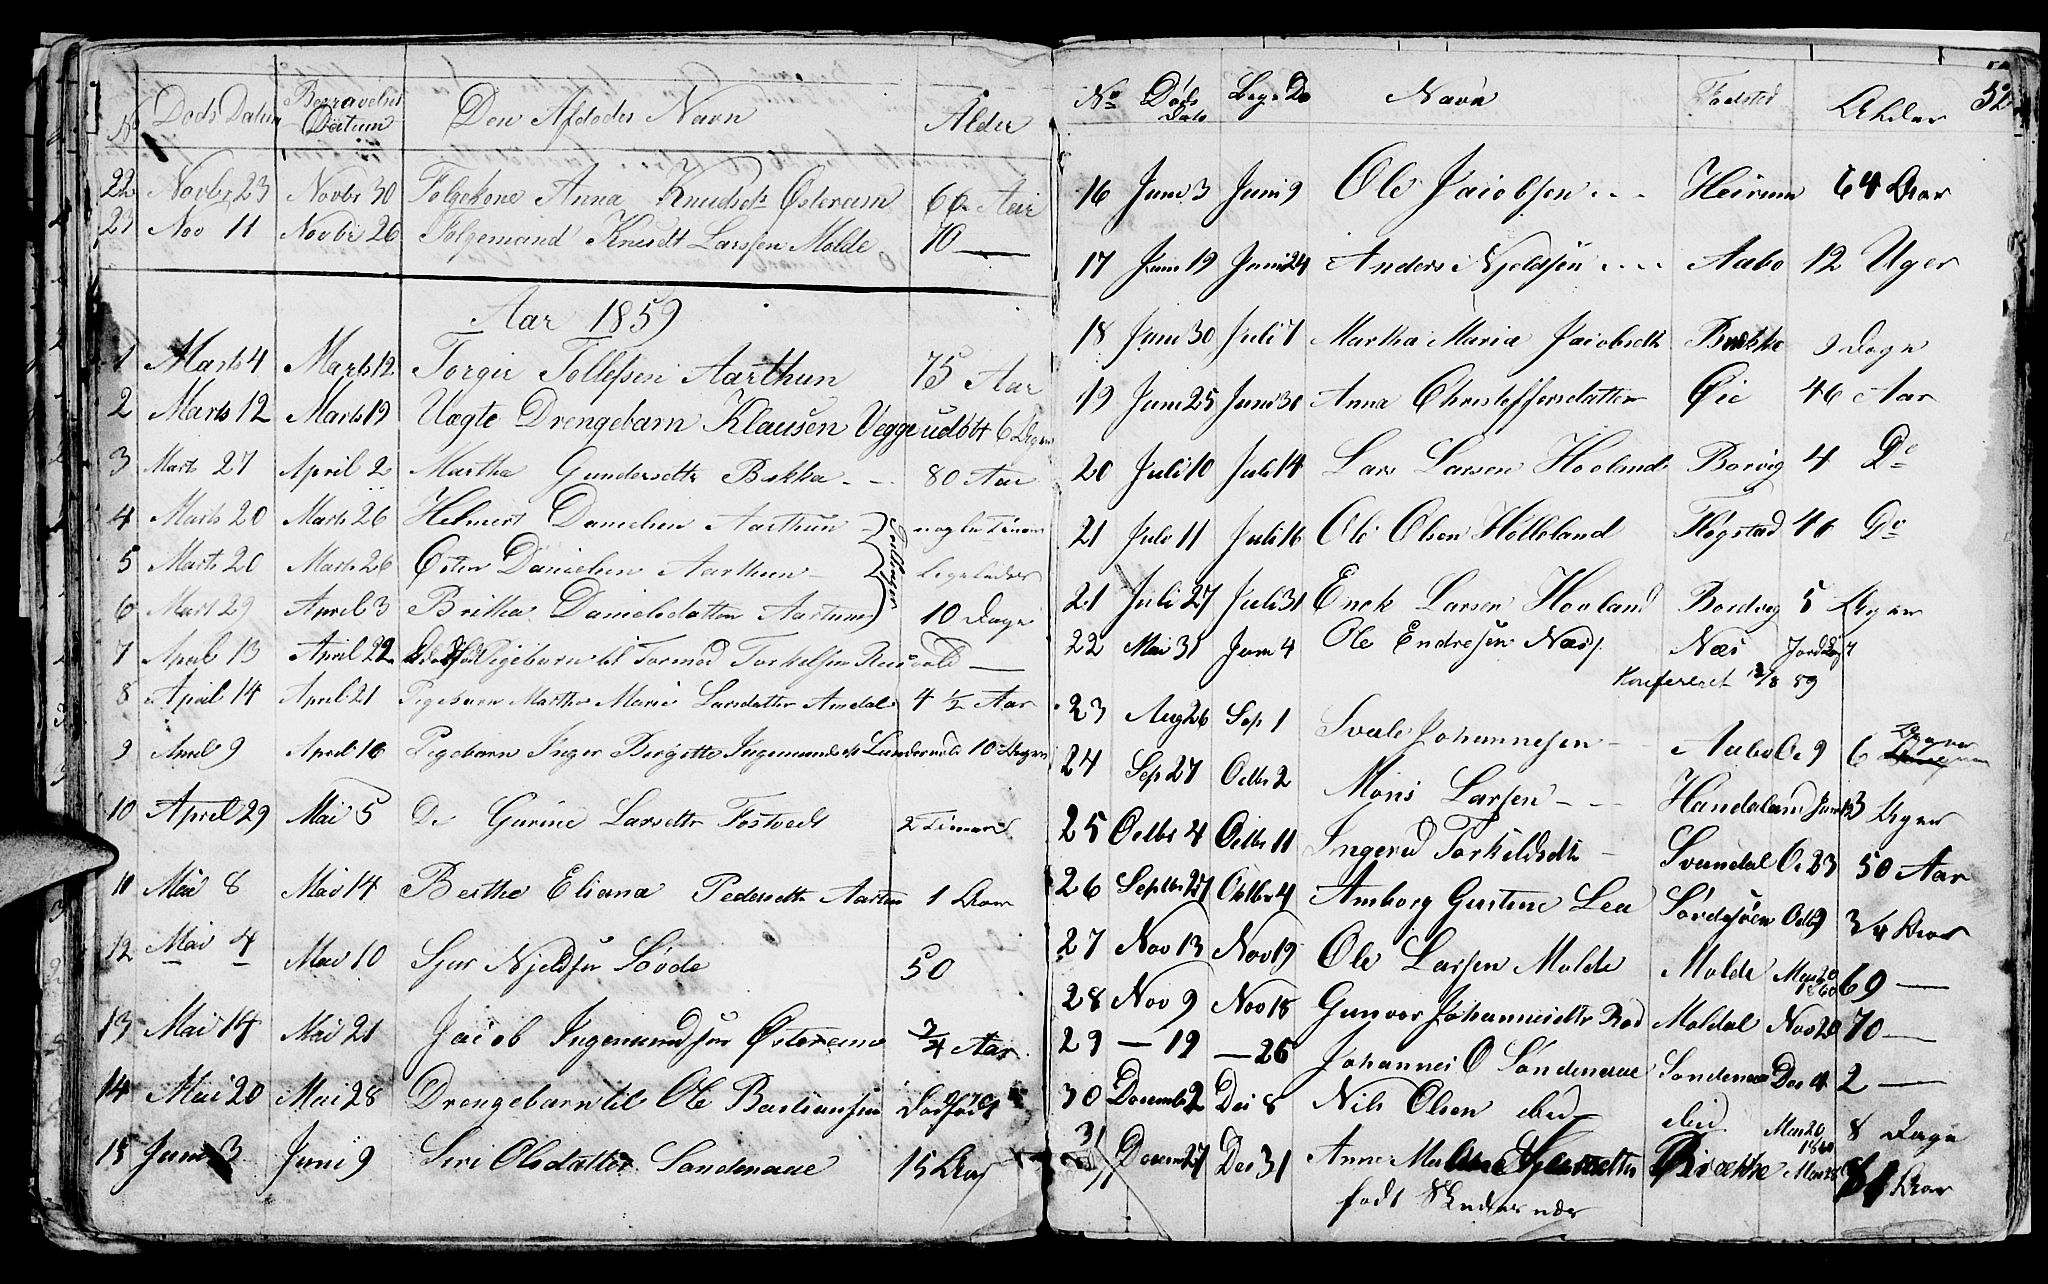 No Døds Datum Begravelses Datum Den Afdødes Navn Alder
22 Novbr 23 Novbr 30 Folgekone Anna Knudsdt Østerem 60 Aar
23 Nov 11 Novbr 26 Folgemand Knudt Larssen Molde 70 —
Aar 1859
1 Marts 4 Marts 12 Torgir Tollefsen Aarthun 75 Aar
2 Marts 12 Marts 19 Uægte Drengebarn Klausen Vegge udøbt 6 Uger
3 Marts 27 April 2 Martha Gundersdtr Bakka - - 80 Aar
4 Marts 20 Marts 26 Helmert Danielsen Aarthun nogle Timer
5 Marts 20 Marts 26 Østen Danielsen Aarthun - Ligeledes
Trillinger
6 Mart 29 April 3 Britha Danielsdatter Aartun 10 Dage
7 April 13 April 22 Pigebarn til Tormod Torkelsen —
8 April 14 April 21 Pigebarn Martha Marie Larsdatter Amdal 4 1/2 Aar
9 April 9 April 16 Pigebarn Inger Birgitte Ingemundsdt 10 Uger
10 April 29 Mai 5 Do Gurine Larsdtr Fostvedt 2 Timer
11 Mai 8 Mai 14 Berthe Eliana Pedersdtr Aartun 1 Aar
12 Mai 4 Mai 10 Sjur Njeldsen Løvde 50
13 Mai 14 Mai 21 Jacob Ingemundsen Østerem 3/4 Aar
14 Mai 20 Mai 28 Drengebarn til Ole Bastiansen Dødfødt
15 Juni 3 Juni 9 Siri Olsdatter Sandenaae 15 Aar
No Døds Dato Begr Do Navn Fødsted Alder 52
16 Juni 3 Juni 9 Ole Jacobsen - - - Heirum 64 Aar
17 Juni 19 Juni 24 Anders Njeldsen - - - Aabo 12 Uger
18 Juni 30 Juli 7 Martha Maria Jacobsdtr Bakke 9 Dage
19 Juni 25 Juni 30 Anna Christoffersdatter Øie 46 Aar
20 Juli 10 Juli 14 Lars Larsen Hooland Borvig 4 Do
21 Juli 11 Juli 16 Ole Olsen Hølleland Flogstad 46 Do
21 Juli 27 Juli 31 Enok Larsen Hovland Bordvig 5 Uger
22 Mai 31 Juni 4 Ole Endresen Næss Næs
Konfereret 12/8 59
23 Aug 26 Sep 1 Svale Johannesen - Aabo Oc 9 6 Uger
24 Sep 27 Octbr 2 Mons Larsen - - Handeland 3 Uger
25 Octbr 4 Octbr 11 Ingerid Torkildsdtr - Svandal Oc 23 50 Aar
26 Septbr 27 Oktbr 4 Amborg Gurine Lea Octb 9 3/4 Aar
27 Nov 13 Nov 19 Ole Larsen Molde Molde Mar 20 1860 69 —
28 Nov 9 Nov 18 Gunvor Johannesdtr Moldal Nov 20 70 —
29 — 19 — 26 Johannes O Sandenaae Sandenaae Dec 4 2 —
30 Decemb 2 Dec 8 Nils Olsen ibid ibid Mar 20 1860 8 Dage
31 Decem 27 Dec 31 Anne Bakke Aar
født